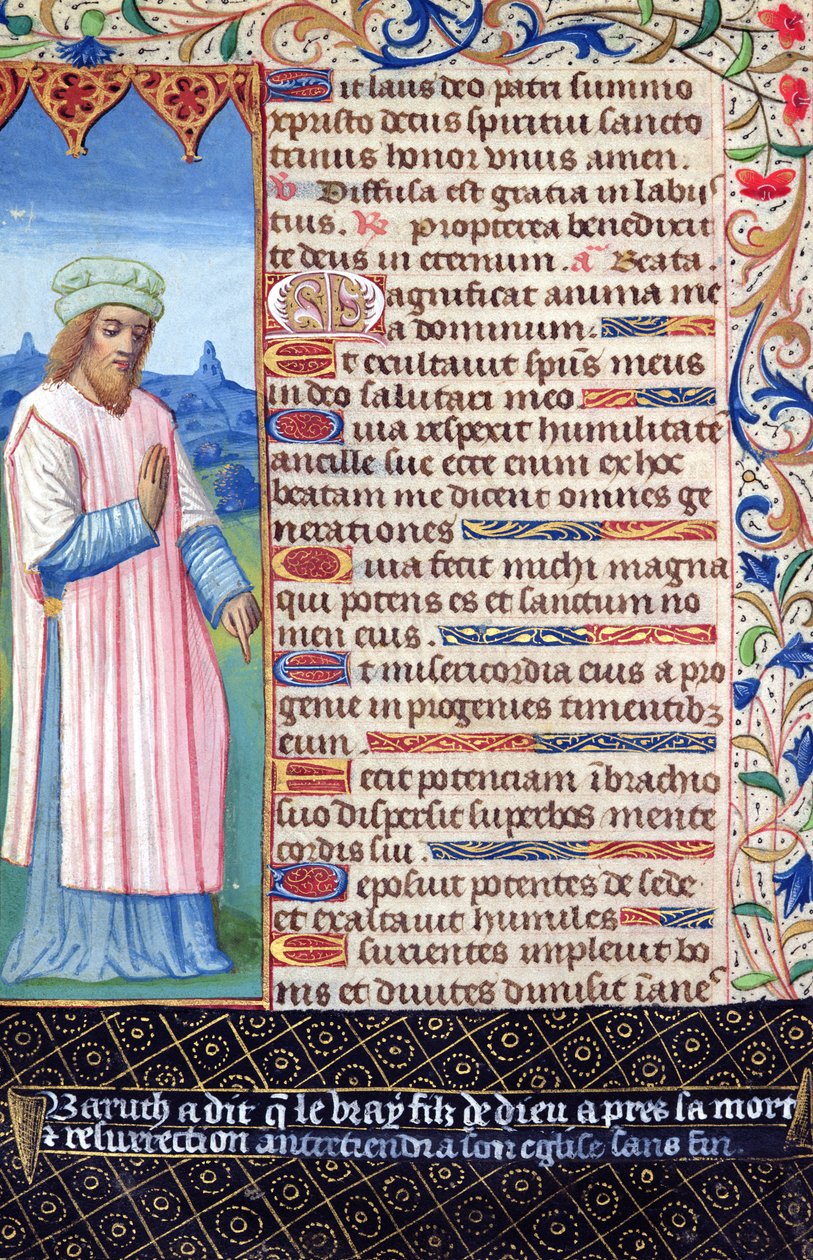 Sit laus deo patri summo
xpristo decus spiritui sancto
trinus honor vnus amen.
V Diffusa est gratia in labiis
tuis. R propterea benedixit
te deus in eternum. a Beata.
Magnificat anima me
a dominum.
Et exultauit spūs meus
in deo salutari meo.
Quia respexit humilitatē
ancille sue ecce enim ex hoc
beatam me dicent omnes ge
nerationes
Quia fecit michi magna
qui potens es et sanctum no
men eius.
Et misericordia eius a pro
genie in progenies timentibꝫ
eum.
Fecit potenciam ī brachio
suo dispersit superbos mente
cordis sui.
Deposuit potentes de sede
et exaltauit humiles
Esurientes impleuit bo
nis et diuites dimisit īanes
Baruth a dit q̄ le vray filz de dieu apres sa mort
⁊ resurrection son eglise sans fin.